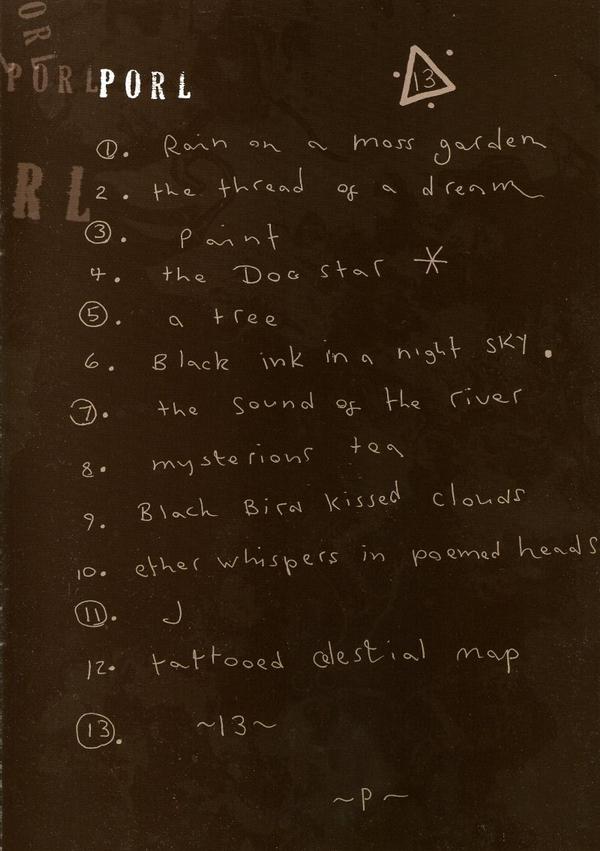 PORL
PORL PORL
RL
13
1. Rain on a moss garden
2. the thread of a dream
3. Paint
4. the Dog star *
5. a tree
6. Black ink in a night SKY.
7. the sound of the river
8. mysterious tea
9. Black Bird kissed clouds
10. ether whispers in poemed heads
11. J
12. tattooed celestial map
13. ~13~
~P~